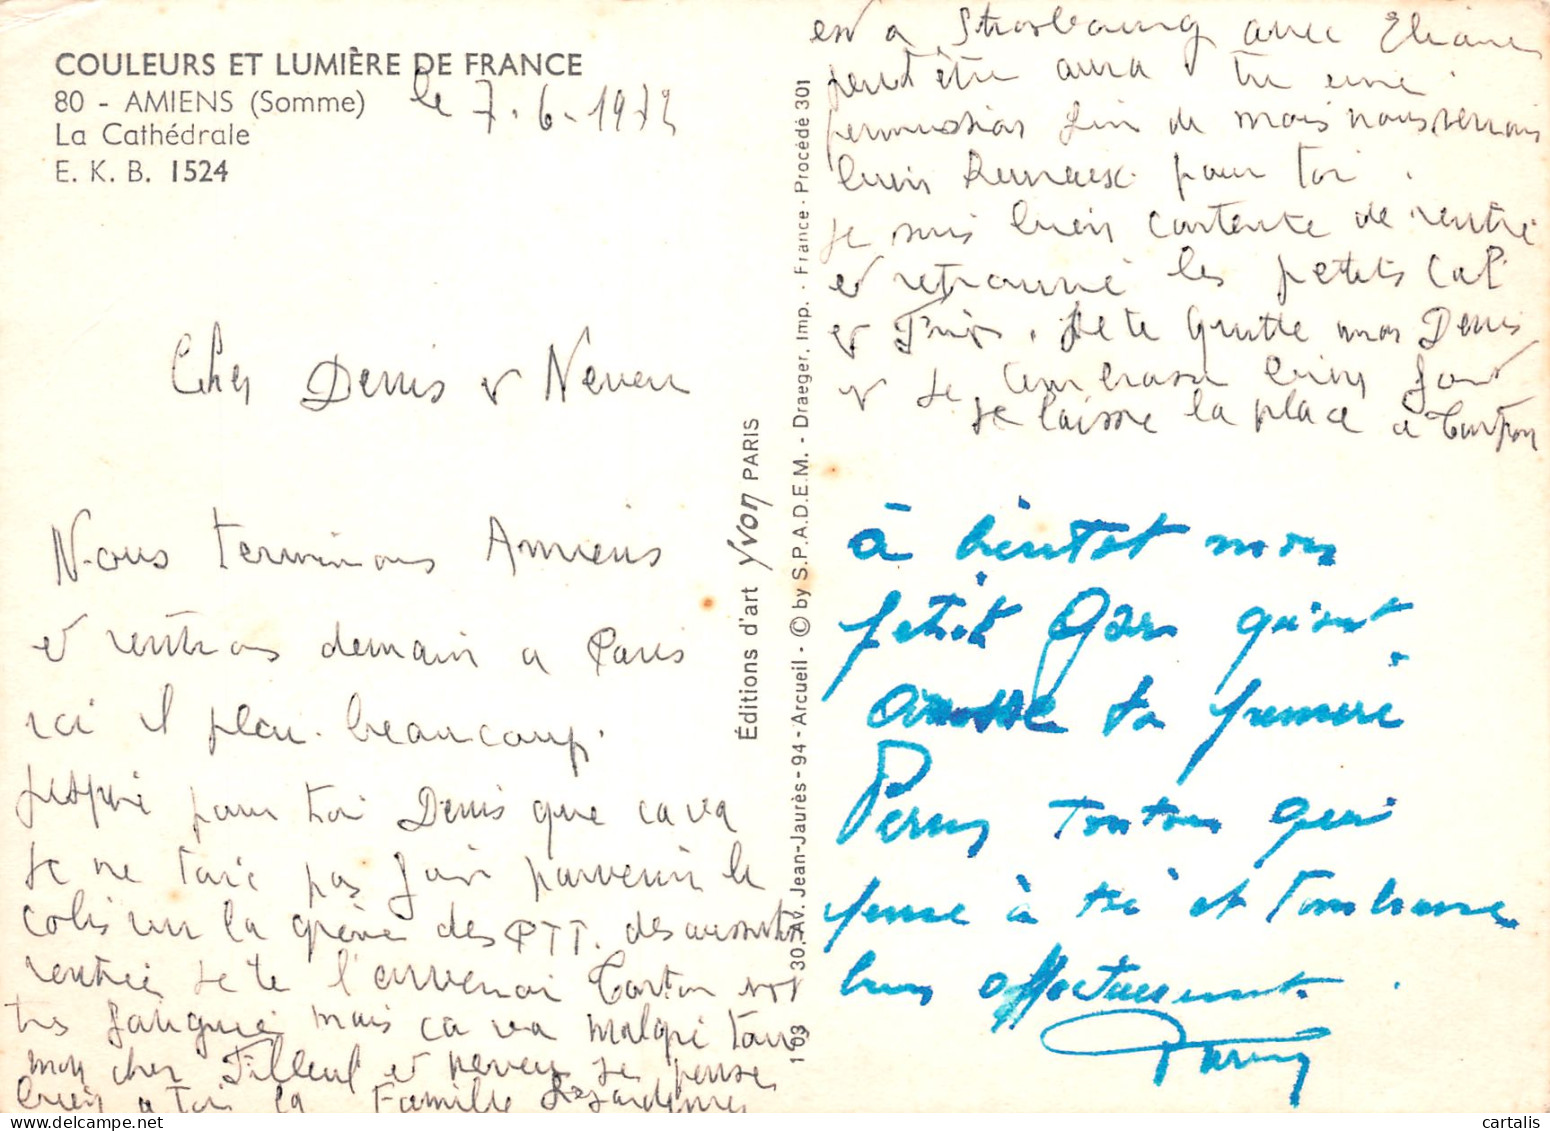 COULEURS ET LUMIÈRE DE FRANCE
80 - AMIENS (Somme)
La Cathédrale
E. K. B. 1524
le 7.6.1972
Cher Denis et Neveu
Nous terminons Amiens
et rentrons demain a Paris
ici il pleu beaucoup.
jespère pour toi Denis que ca va
Je ne tais pas fair parvenir le
colis vu la grève des PTT. des aussitot
rentrée je te l'envenai Tonton est
très fatigué mais ca va malgré tous
mon cher Filleul et neveu je pense
bien a toi la Famille
Éditions d'art yvon PARIS
1 03 30, Av. Jean-Jaurès - 94 - Arcueil - © by S.P.A.D.E.M. - Draeger, Imp. - France - Procédé 301
est a Strasbourg avec Eliane
peut être aura tu une
permission fin de mois nous serions
bien heureux pour toi.
je suis bien contente de rentré
et retrouvé les petits
et . Je te quitte mon Denis
et je t'embrasse bien fort
je laisse la place a Tonton
à bientot mon
petit Gars qu'ont
arrosse ta première
Perm tonton qui
pense à toi et t'embrasse
bien affectueusement.